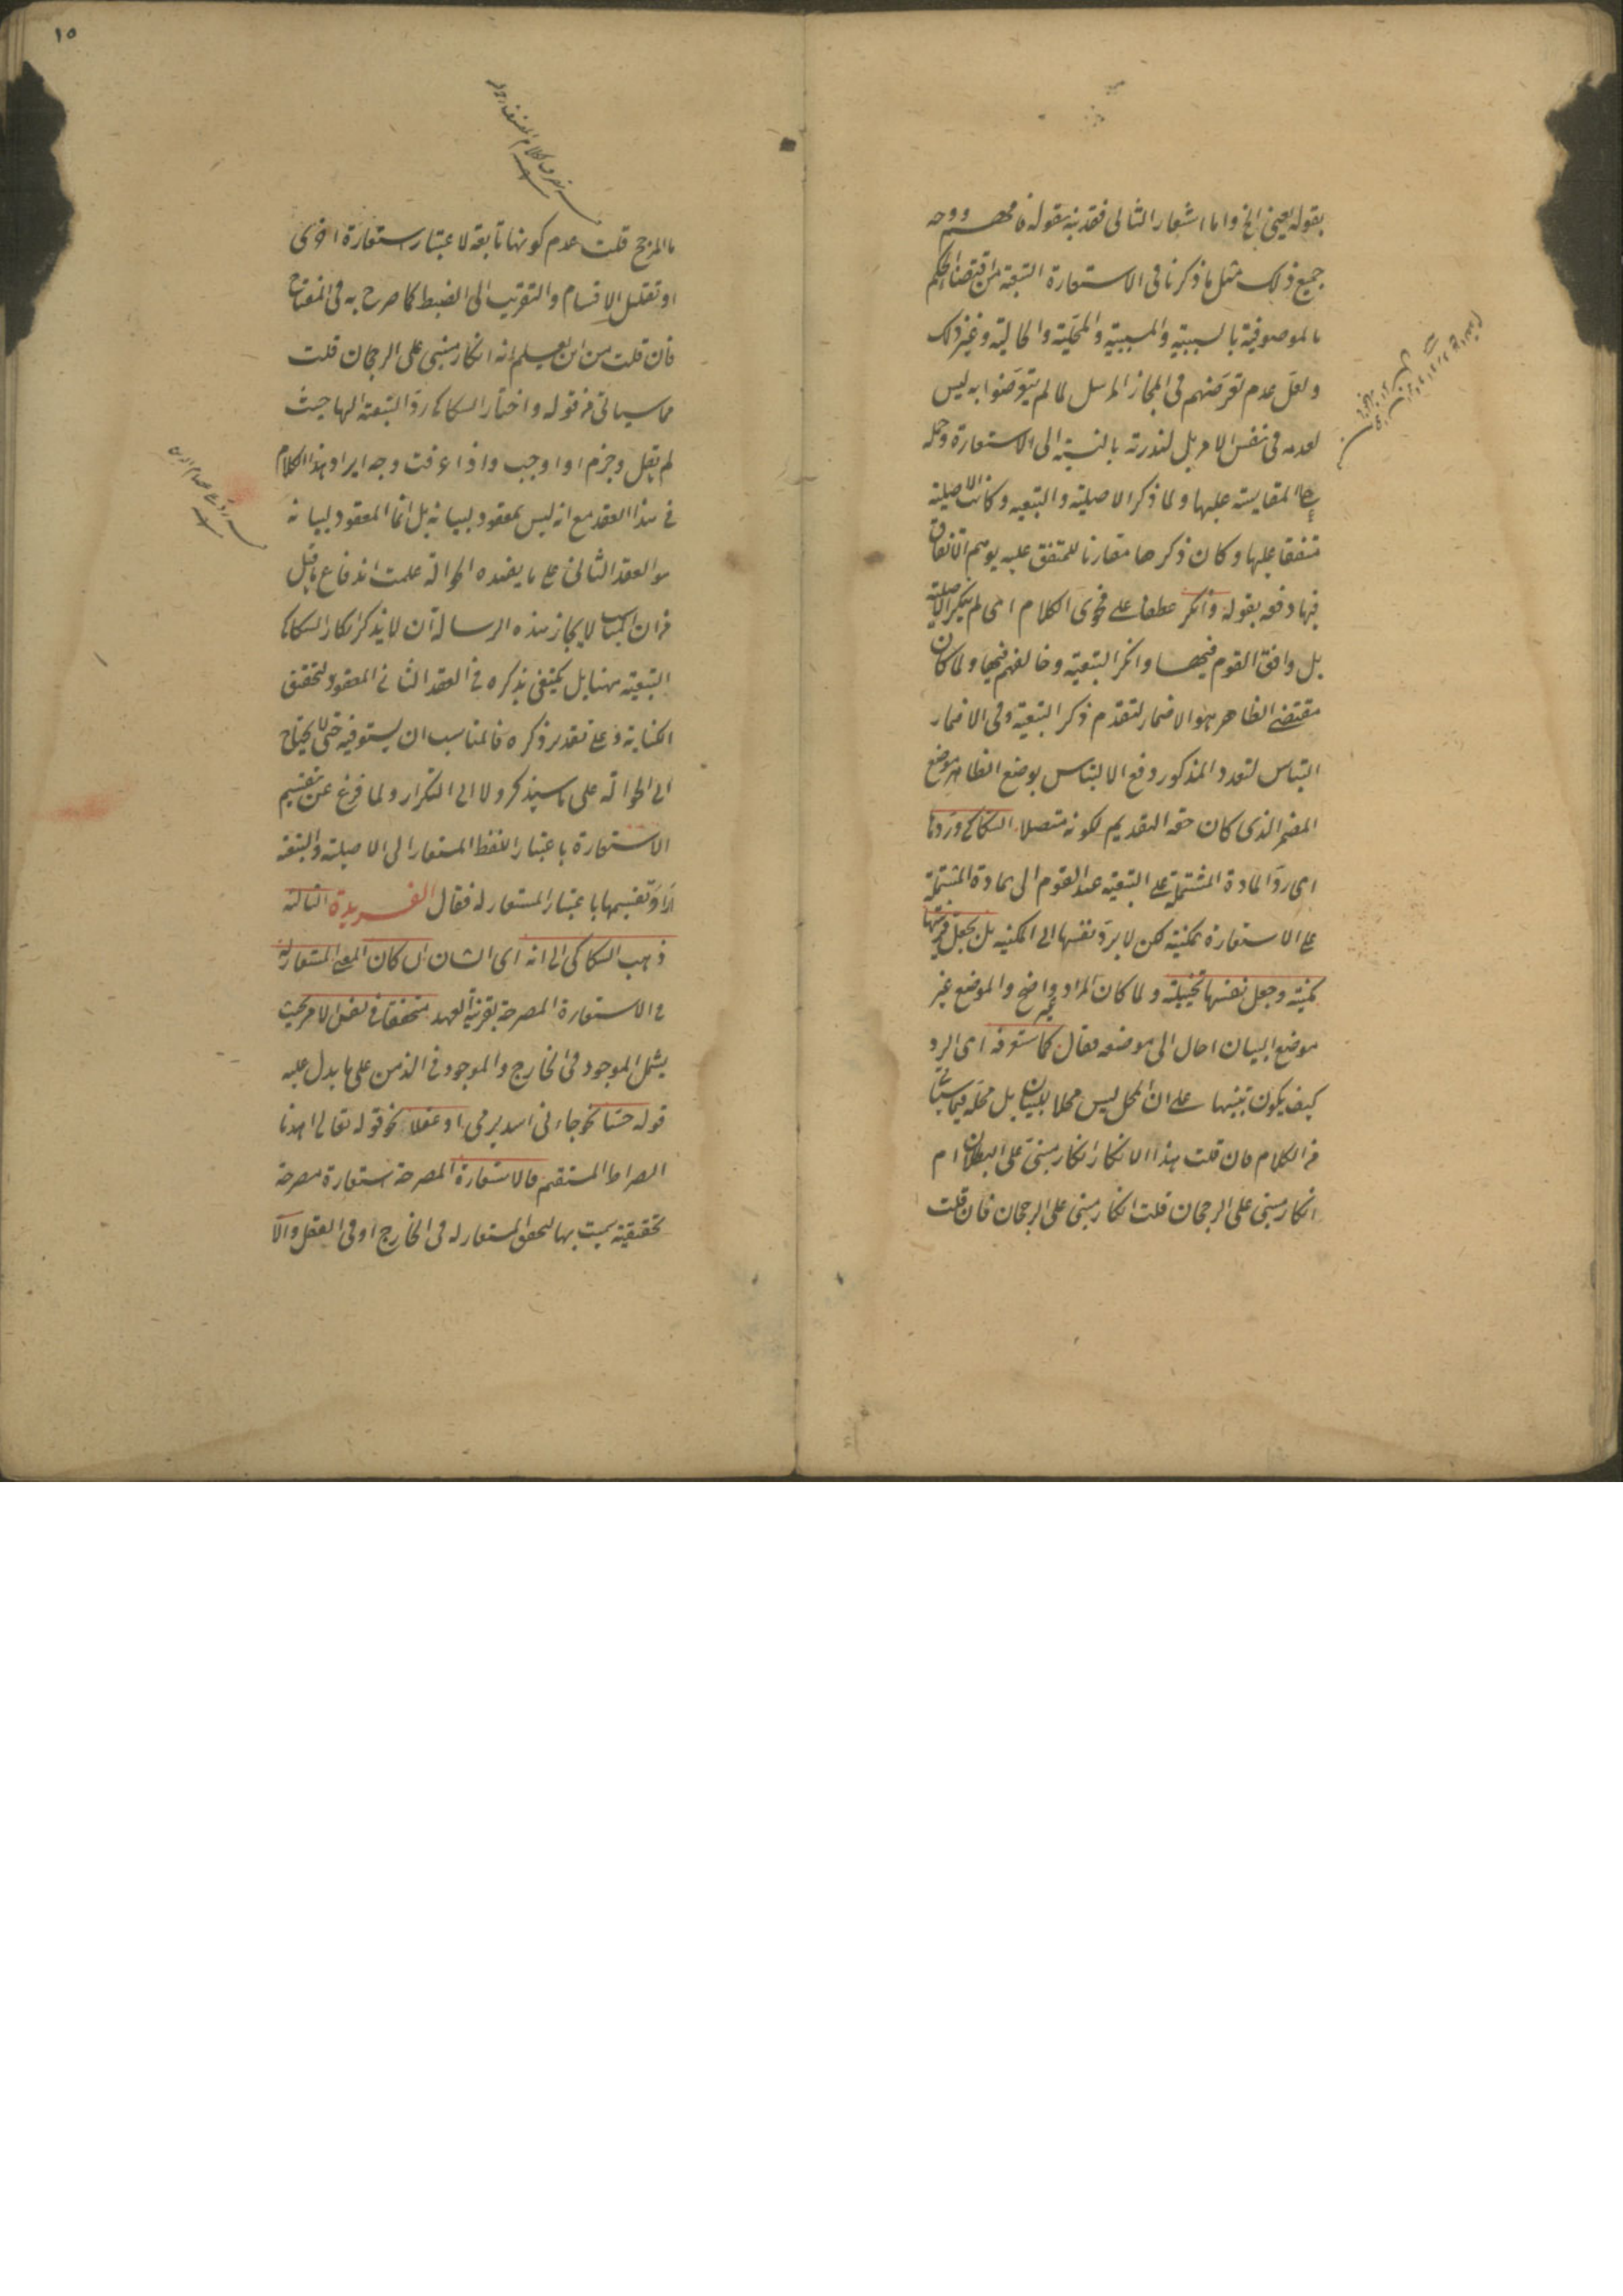 بقوله يعني الخ واما اشعار الثاني فقد نبه بقوله فافهم ووجه
جميع ذلك مثل ما ذكرنا في الاستعارة التبعية من اقتضاء الحكم
بالموصوفية بالسببية والمسببية والمحلية والحالية وغير ذلك
ولعل عدم تعرضهم في المجاز المرسل لما لم يتعرضوا به ليس
لعدمه في نفس الامر بل لندرته بالنسبة الى الاستعارة وحمله
على المقايسة عليها ولما ذكر الاصلية والتبعية وكانت الاصلية
متفقا عليها وكان ذكرها مقارنا للمتفق عليه يوهم الاتفاق
فيها دفعه بقوله وانكر عطفا على فحوى الكلام اى لم ينكر الاصلية
بل وافق القوم فيها وانكر التبعية وخالفهم فيها ولما كان
مقتضى الظاهر هو الاضمار لتقدم ذكر التبعية وفى الاضمار
التباس لتعدد المذكور دفع الالتباس بوضع الظاهر موضع
المضمر الذى كان حقه التقديم لكونه متصلا السكاكى وردها
اى رد المادة المشتملة على التبعية عند القوم الى مادة المشتملة
على الاستعارة مكنية لكن لا يرد نفسها الى المكنية بل يجعل قرينتها
مكنية وجعل نفسها تخييلية ولما كان المراد غير واضح والموضع غير
موضع البيان احال الى موضعه فقال كما ستعرفه اى الرد
كيف يكون تنبيها على ان المحل ليس محلا للبيان بل محله فيما سياتى
من الكلام فان قلت هذا الانكار انكار مبنى على البطلان ام
انكار مبنى على الرجحان قلت انكار مبنى على الرجحان فان قلت
١٥
ما المرجح قلت عدم كونها تابعة لاعتبار استعارة اخرى
او تقليل الاقسام والتقريب الى الضبط كما صرح به فى المفتاح
فان قلت من اين يعلم انه انكار مبنى على الرجحان قلت
مما سياتى من قوله واختار السكاكى رد التبعية اليها حيث
لم يقل وجزم او اوجب واذا عرفت وجه ايراد هذا الكلام
فى هذا العقد مع انه ليس بمعقود لبيانه بل انما المعقود لبيانه
هو العقد الثانى على ما يفيده الحوالة علمت اندفاع ما قيل
من ان المناسب لايجاز هذه الرسالة ان لا يذكر انكار السكاكى
التبعية ههنا بل يكتفى بذكره فى العقد الثانى المعقود لتحقيق
الكناية وعلى تقدير ذكره فالمناسب ان يستوفيه حتى لا يحتاج
الى الحوالة على ما سيذكر ولا الى التكرار ولما فرغ عن تقسيم
الاستعارة باعتبار اللفظ المستعار الى الاصلية والتبعية
اراد تقسيمها باعتبار المستعار له فقال الفريدة الثالثة
ذهب السكاكى الى انه اى الشان ان كان المعنى المستعار له
فى الاستعارة المصرحة بقرينة العهد متحققا فى نفس الامر بحيث
يشمل الموجود فى الخارج والموجود فى الذهن على ما يدل عليه
قوله حسا نحو جاءنى اسد يرمى او عقلا نحو قوله تعالى اهدنا
الصراط المستقيم فالاستعارة المصرحة استعارة مصرحة
تحقيقية سميت بها لتحقق المستعار له فى الخارج او فى العقل والا